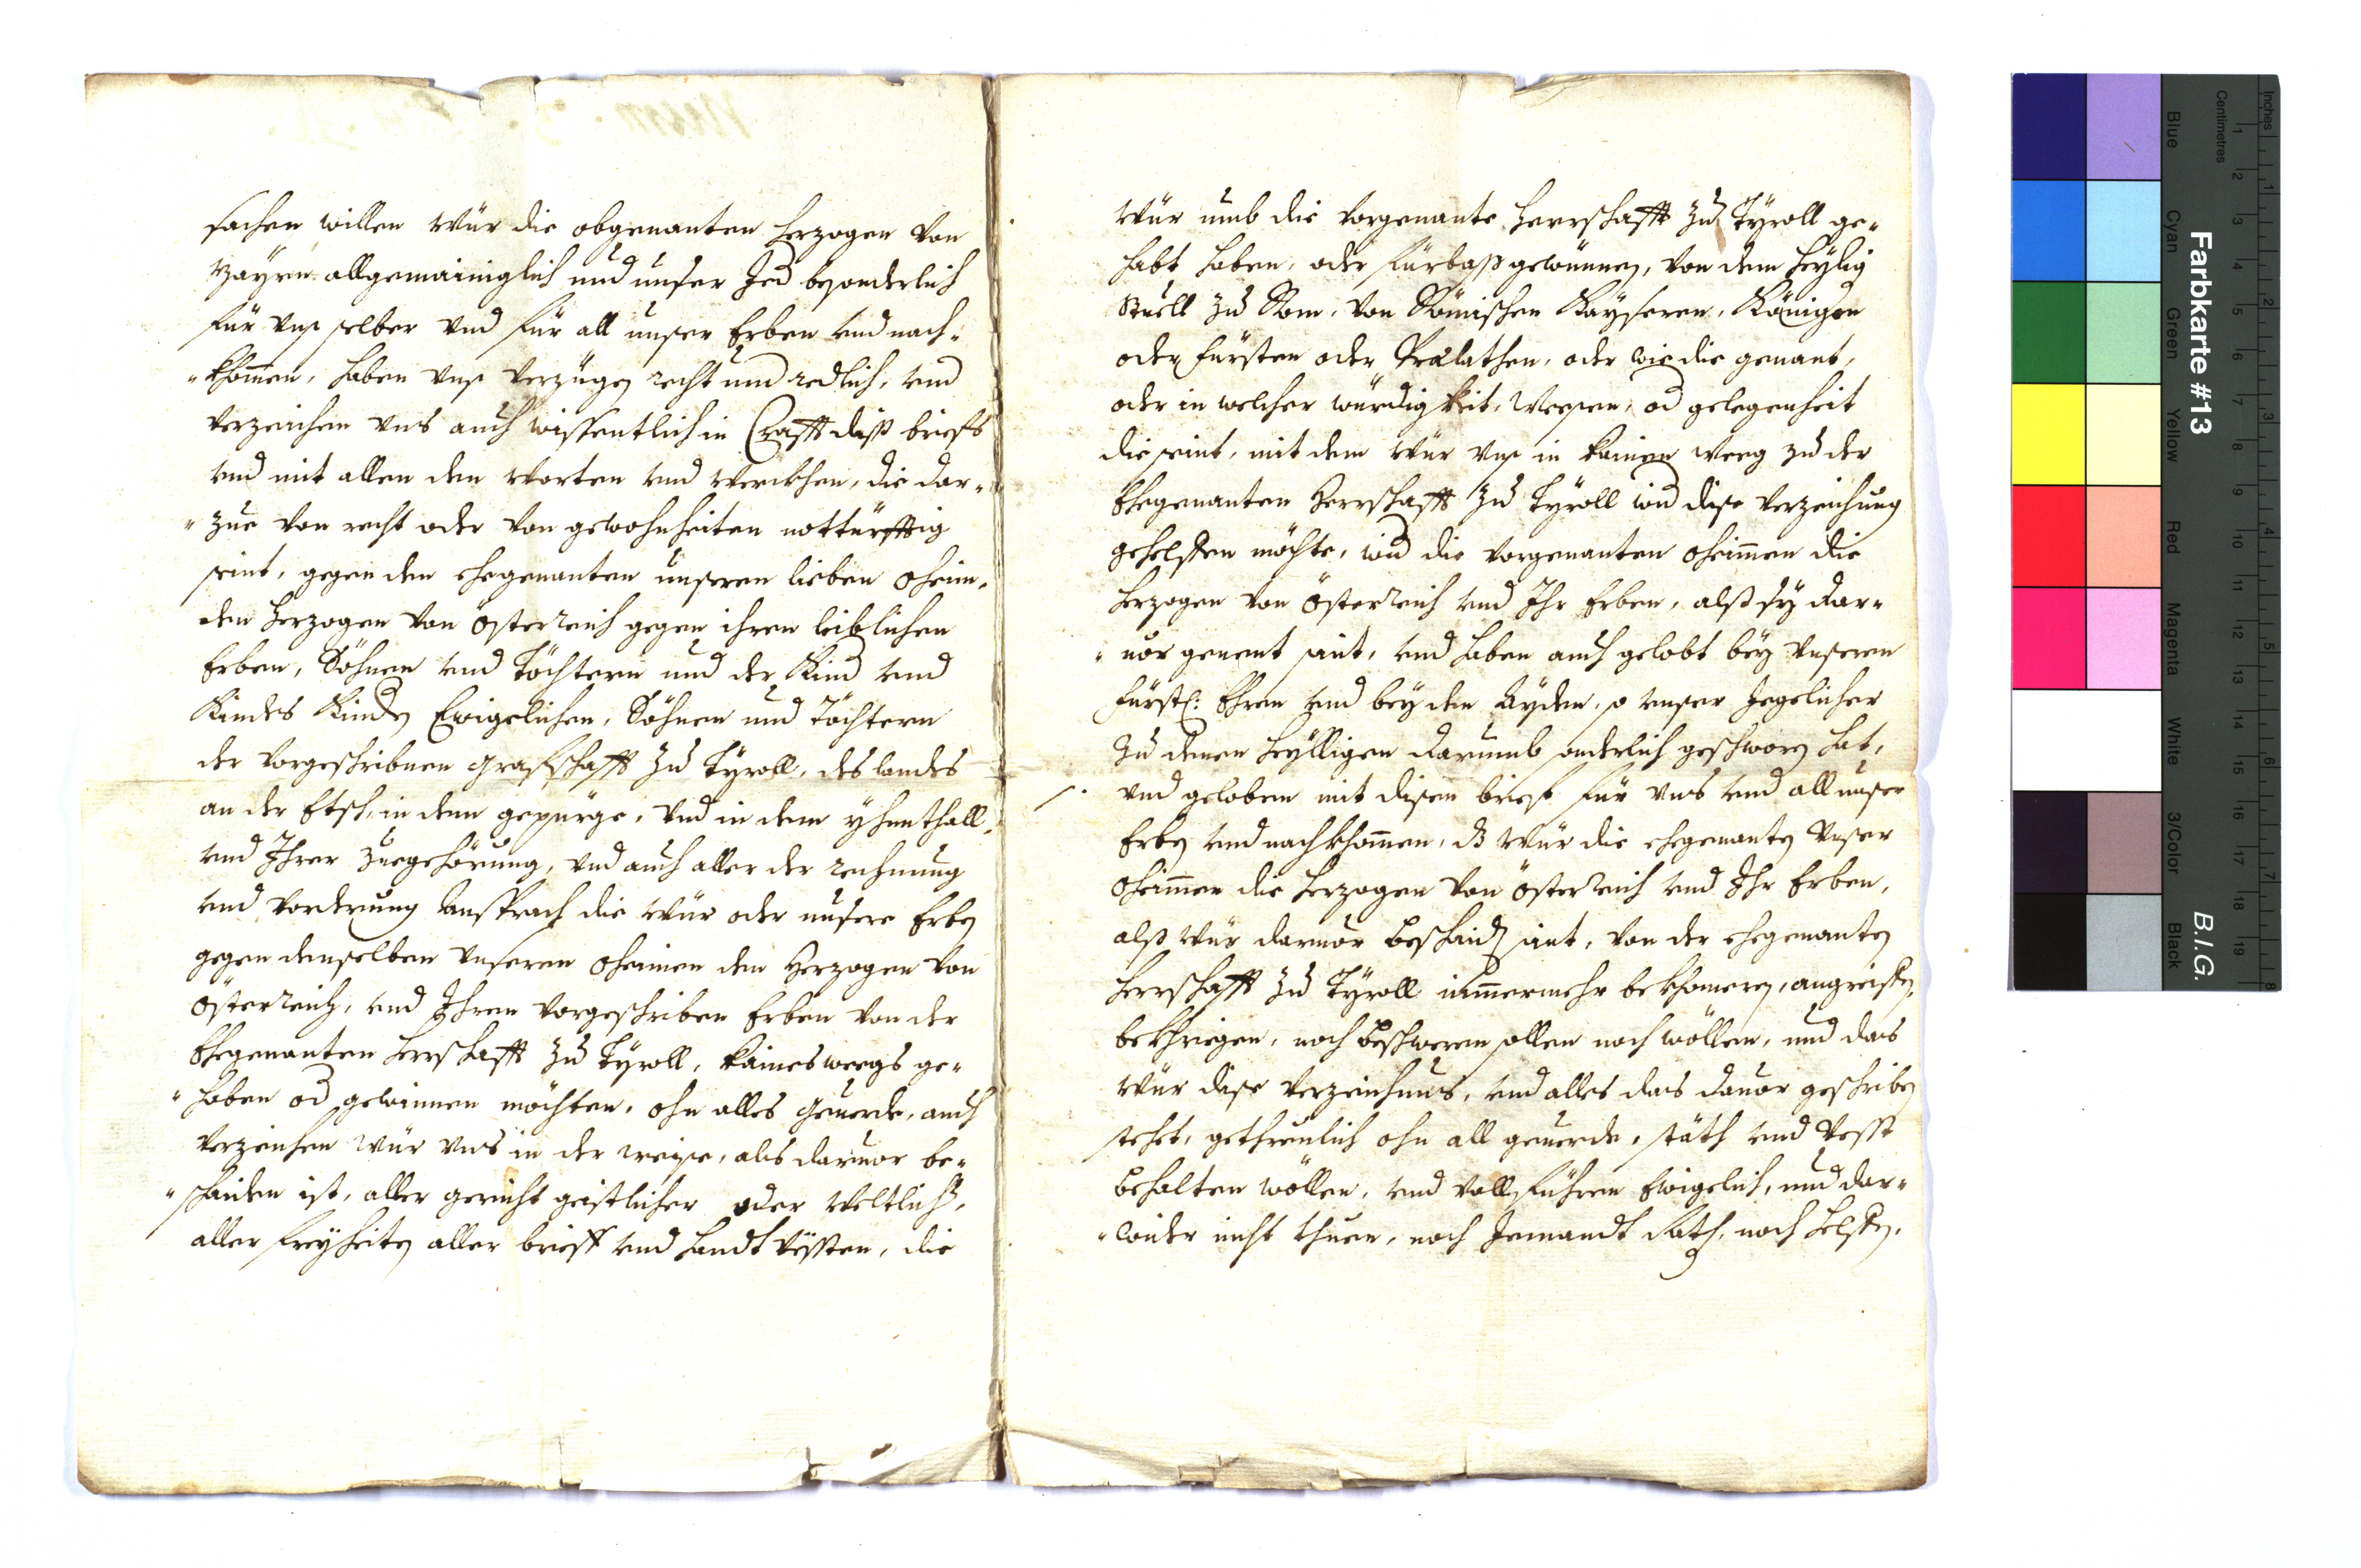 sachen willen wür die obgenanten herzogen von
Bayrn allgemainiglich und unser Jed besonderlich
für vnß selber vnd für all unser Erben vnd nach-
"khommen, haben vnß verzügen recht und redlich, vnd
verzeichen vns auch wissentlich in Crafft diß briefs
vnd mit allen den worten vnd werckhen, die dar-
"zue von recht oder von gewohnheiten notturfftig
seint, gegen den ehegenanten unseren lieben oheim,
den herzogen von Österreich gegen ihren leiblichen
Erben, Söhnen vnd Töchtern und der Kind vnd
Kindes Kinden Ewigelichen, Söhnen und Töchtern
der vorgeschribnen Grafschafft zu Tyroll, des landes
an der Etsch, in dem gepürge, vnd in dem yhnthall,
vnd Ihrer zuegehörung, vnd auch aller der rechnung
vnd vorderung Ansprach die wür oder unsere Erben
gegen denselben vnseren oheimen den Herzogen von
Österreich, vnd Ihren vorgeschriben Erben von der
Ehegenanten herrschafft zu Tyroll, kaines weegs ge-
"haben od gewinnen möchten, ohn alles Geuerde, auch
verzeichen wür vns in der weise, als daruor be-
"schaiden ist, aller gericht geistlicher oder weltlich,
aller freyheiten aller brieff vnd handtvesten, die
wür umb die vorgenante herrschafft zu Tyroll ge-
habt haben, oder fürbaß gewünnen, von dem heylig
Stuell zu Rom, von Römischen Kayseren, Königen
oder fürsten oder Prælathen, oder wie die genant,
oder in welcher würdigkeit, Weesen, od gelegenheit
die seint, mit dem wür vnß in kainen weeg zu der
Ehegenanten Herrschafft zu Tyroll wid dise verzeichung
gehelffen möchte, wid die vorgenanten oheimmen die
herzogen von Österreich vnd Ihr Erben, alß sy dar-
"uor genent seint, vnd haben auch gelobt bey vnseren
fürstl: Ehren vnd bey den Ayden, so vnser Jegelicher
zu denen heylligen darumb sonderlich geschworen hat,
vnd geloben mit disem brief für vns vnd all unser
Erben vnd nachkhommen, dz wür die ehegenanten vnser
oheimmen die herzogen von Österreich vnd Ihr Erben,
alß wür daruor beschaiden seint, von der ehegenanten
herrschafft zu Tyroll nimmermehr bekhomeren, angreiffen,
bekhriegen, noch beschweren sollen noch wöllen, und das
wür dise verzeichnus, vnd alles das dauor geschriben
stehet, gethreulich ohn all geuerde, stäth vnd vesst
behalten wöllen, vnd vollführen Ewigelich, und dar-
"wider nicht thuen, noch Jemandt Rath, noch helffen,
Farbkarte #13
B.I.G.
Inches
Centimetres
1 2 3 4 5 6 7 8 9 10 11 12 13 14 15 16 17 18 19
1 2 3 4 5 6 7 8
Blue
Cyan
Green
Yellow
Red
Magenta
White
3/Color
Black